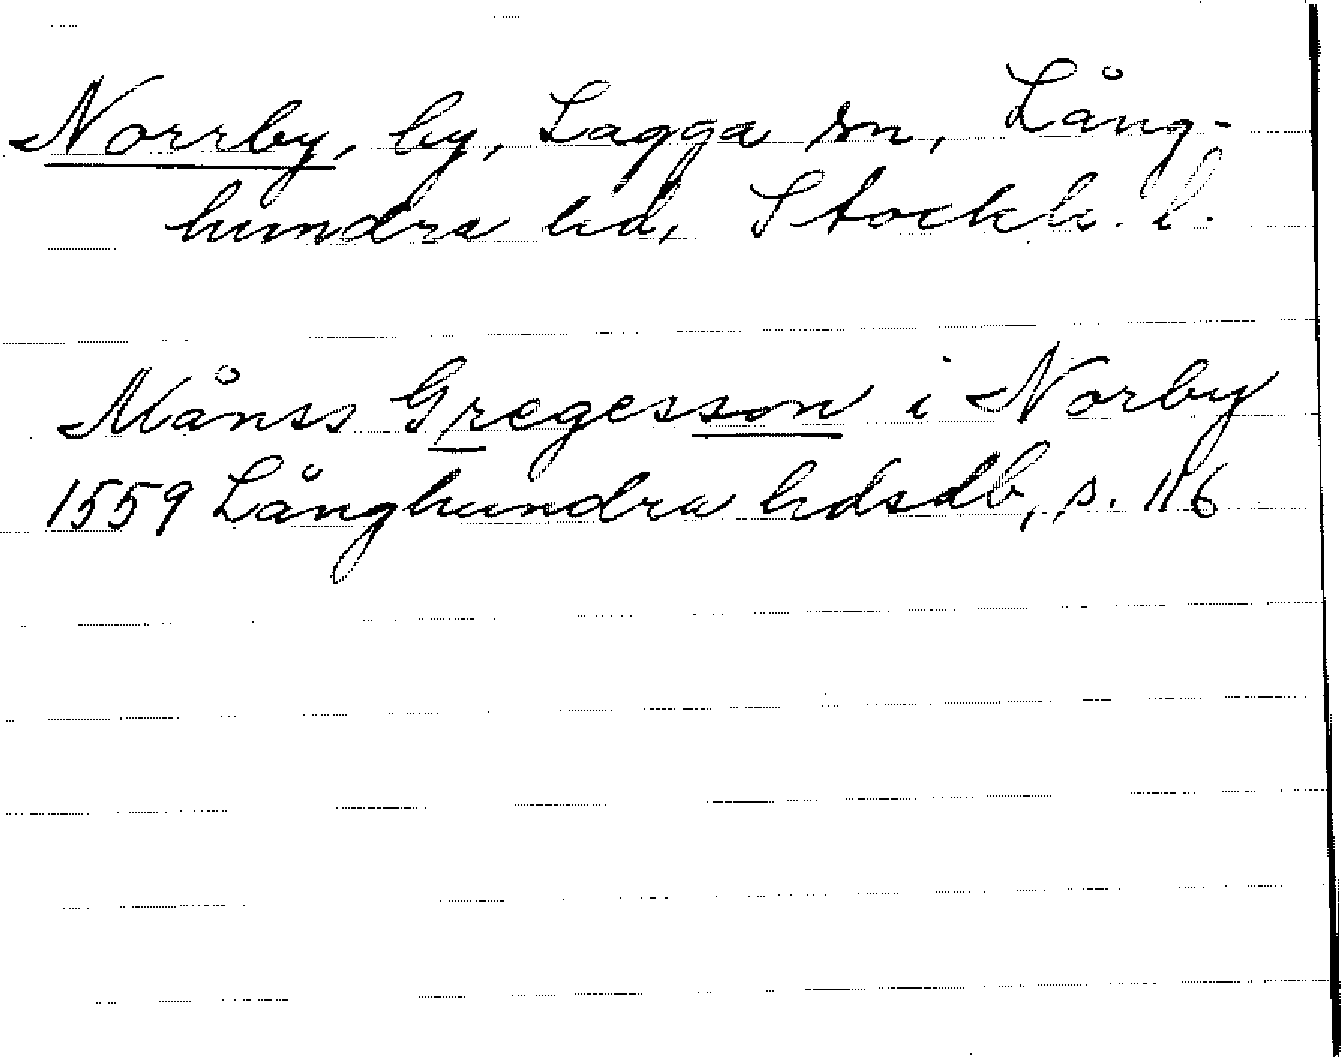 Norrby, by, Lagga sn, Lång-
hundra hd, Stockh. l.
Månss Gregesson i Norby
1559 Långhundra hdsdb, s. 116